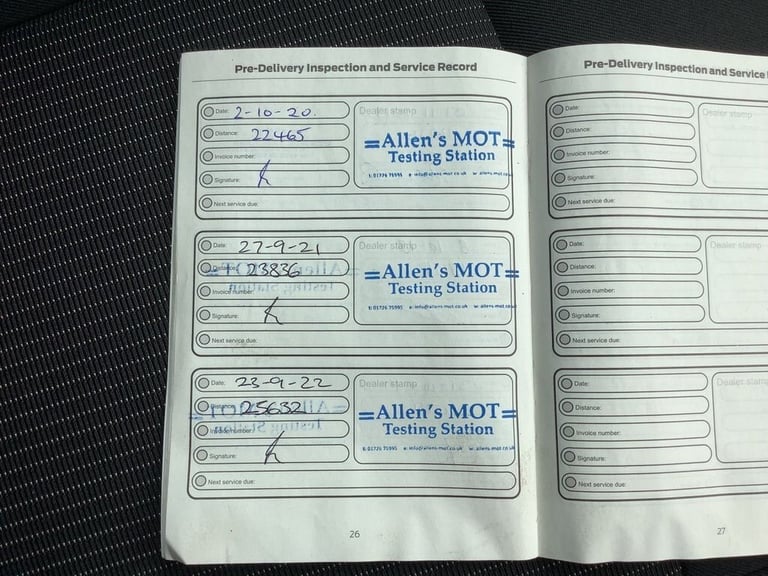 Pre-Delivery Inspection and Service Record
Date: 2-10-20.
Distance: 22465
Invoice number:
Signature:
Next service due:
Dealer stamp
=Allen's MOT=
Testing Station
t: 01726 75995 e: info@allens-mot.co.uk w: allens-mot.co
Date: 27-9-21
Distance: 23836
Invoice number:
Signature:
Next service due:
Dealer stamp
=Allen's MOT=
Testing Station
t: 01726 75995 e: info@allens-mot.co.uk w: allens-mot.co
Date: 23-9-22
Distance: 25632
Invoice number:
Signature:
Next service due:
Dealer stamp
=Allen's MOT=
Testing Station
t: 01726 75995 e: info@allens-mot.co.uk w: allens-mot.co.uk
26
Pre-Delivery Inspection and Service
Date:
Distance:
Invoice number:
Signature:
Next service due:
Dealer stamp
Date:
Distance:
Invoice number:
Signature:
Next service due:
Dealer stamp
Date:
Distance:
Invoice number:
Signature:
Next service due:
Dealer stamp
27